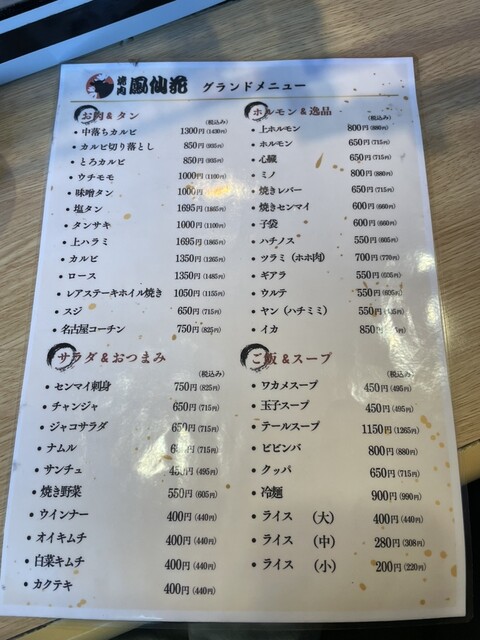 焼肉 鳳仙花 グランドメニュー
お肉&タン
(税込み)
・中落ちカルビ 1300円(1430円)
・カルビ切り落とし 850円(935円)
・とろカルビ 850円(935円)
・ウチモモ 1000円(1100円)
・味噌タン 1000円
・塩タン 1695円(1865円)
・タンサキ 1000円(1100円)
・上ハラミ 1695円(1865円)
・カルビ 1350円(1265円)
・ロース 1350円(1485円)
・レアステーキホイル焼き 1050円(1155円)
・スジ 650円(715円)
・名古屋コーチン 750円(825円)
ホルモン&逸品
(税込み)
・上ホルモン 800円(880円)
・ホルモン 650円(715円)
・心臓 650円(715円)
・ミノ 800円(880円)
・焼きレバー 650円(715円)
・焼きセンマイ 600円(660円)
・子袋 600円(660円)
・ハチノス 550円(605円)
・ツラミ(ホホ肉) 700円(770円)
・ギアラ 550円(605円)
・ウルテ 550円(605円)
・ヤン(ハチミミ) 550円
・イカ 850円
サラダ&おつまみ
(税込み)
・センマイ刺身 750円(825円)
・チャンジャ 650円(715円)
・ジャコサラダ 650円(715円)
・ナムル (715円)
・サンチュ 450円(495円)
・焼き野菜 550円(605円)
・ウインナー 400円(440円)
・オイキムチ 400円(440円)
・白菜キムチ 400円(440円)
・カクテキ 400円(440円)
ご飯&スープ
(税込み)
・ワカメスープ 450円(495円)
・玉子スープ 450円(495円)
・テールスープ 1150円(1265円)
・ビビンバ 800円(880円)
・クッパ 650円(715円)
・冷麺 900円(990円)
・ライス (大) 400円(440円)
・ライス (中) 280円(308円)
・ライス (小) 200円(220円)